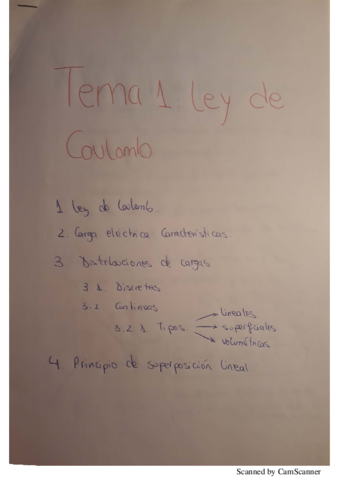 Tema 1 Ley de
Coulomb
1 Ley de Coulomb
2. Carga eléctrica Características
3. Distribuciones de cargas
3 1. Discretas
3.2 Continuas
3.2 1. Tipos → lineales
→ superficiales
→ volumétricas
4 Principio de superposición lineal
Scanned by CamScanner